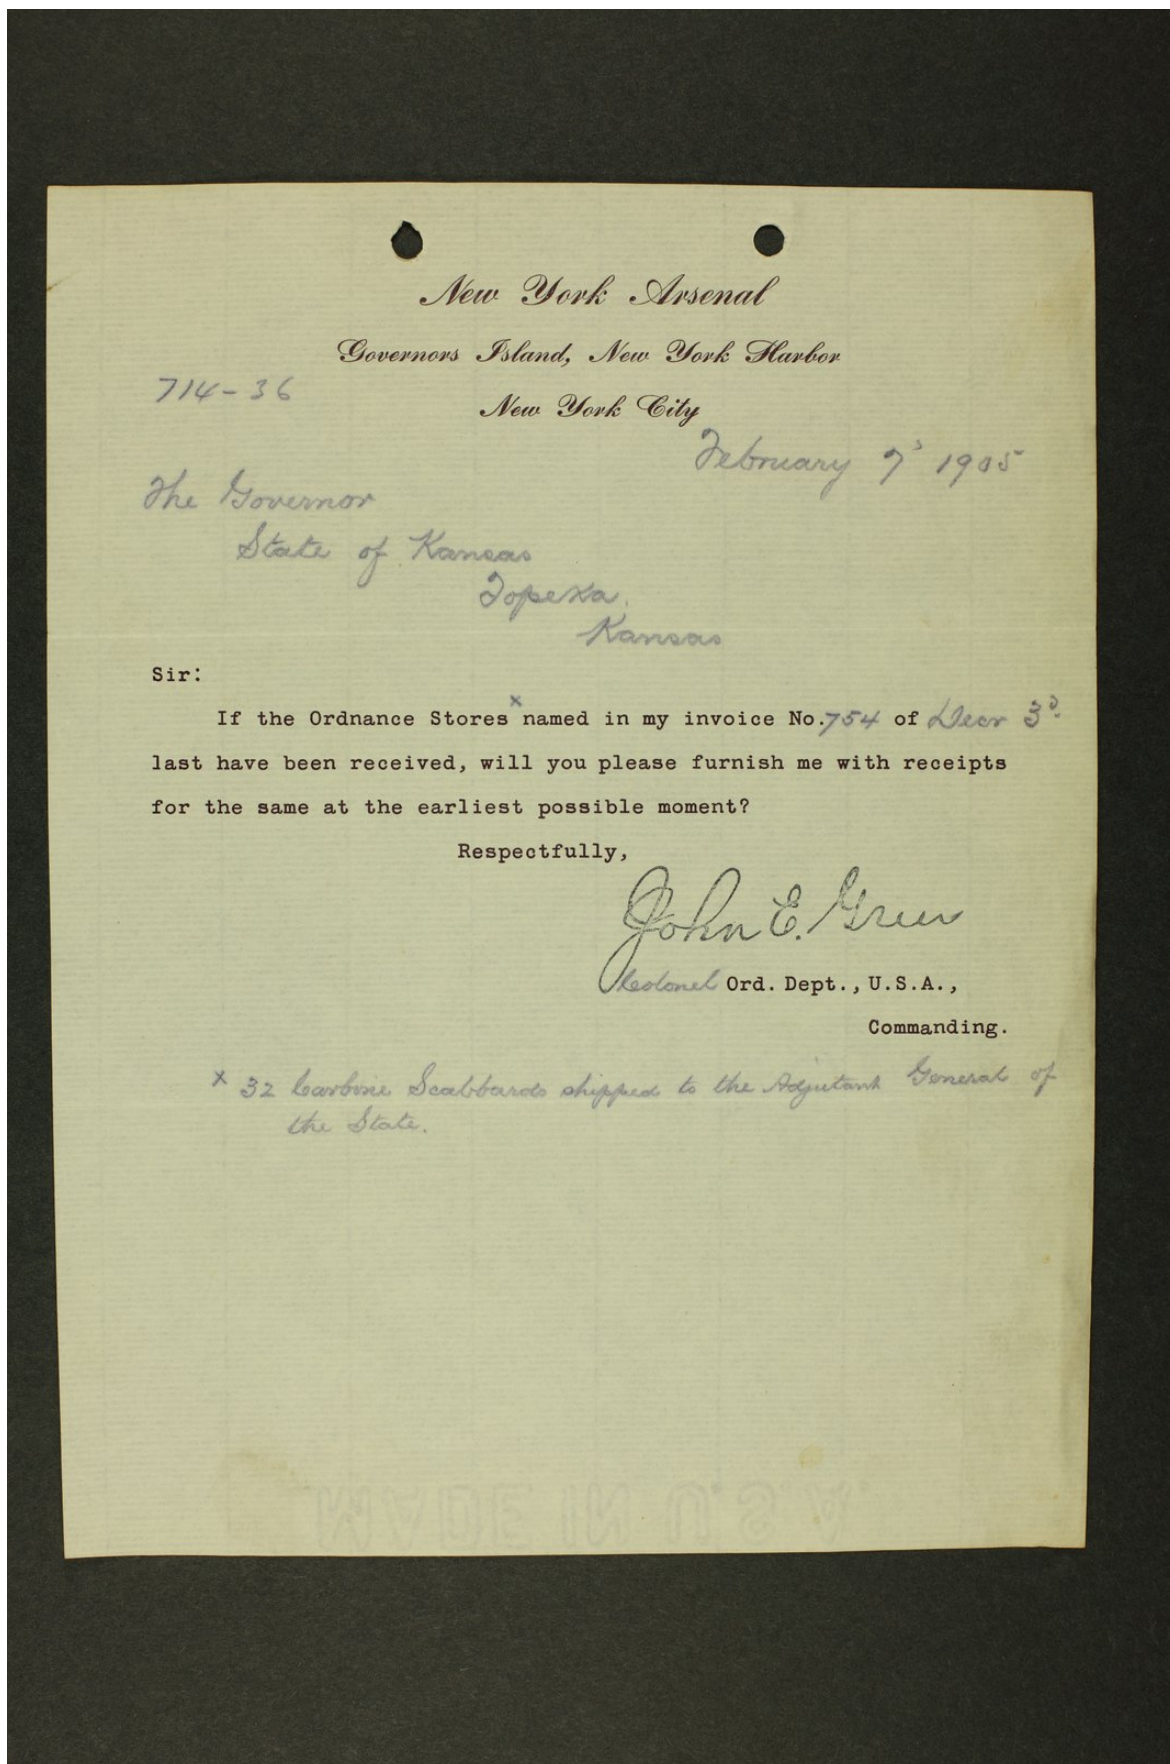 New York Arsenal
Governors Island, New York Harbor
714-36
New York City
February 7' 1905
The Governor
State of Kansas
Topeka.
Kansas
Sir:
If the Ordnance Stores x named in my invoice No. 754 of Decr 3d.
last have been received, will you please furnish me with receipts
for the same at the earliest possible moment?
Respectfully,
John E. Greer
Colonel Ord. Dept., U.S.A.,
Commanding.
x 32 Carbine Scabbards shipped to the Adjutant General of
the State.
MADE IN U.S.A.